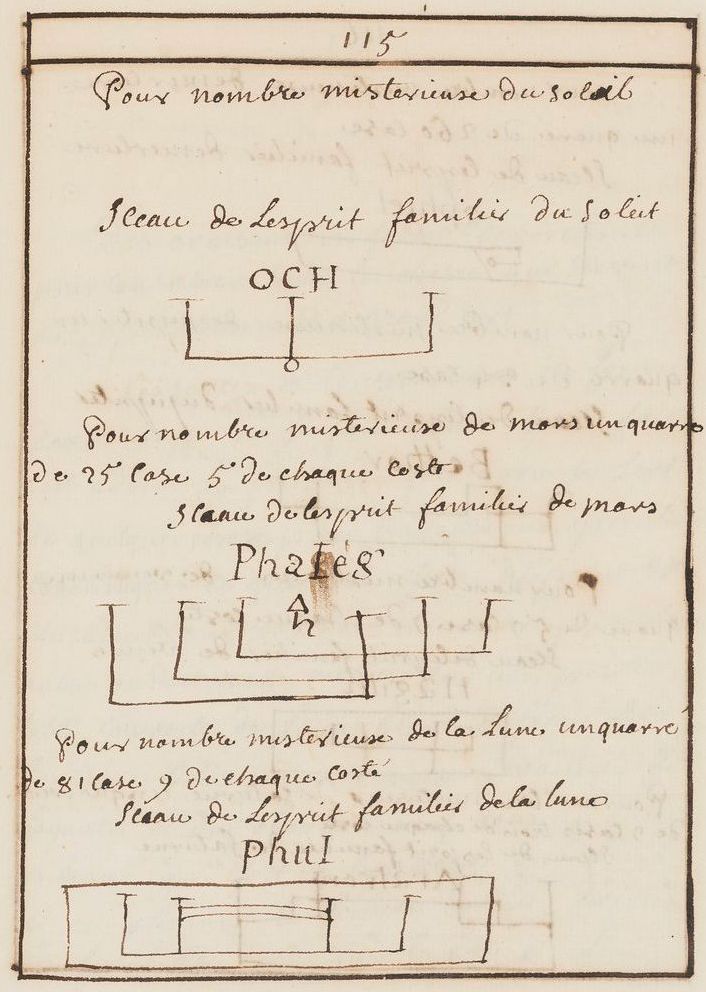 115
Pour nombre misterieuse du soleil
Sceau de Lesprit familier du Soleil
OCH
Pour nombre misterieuse de mars un quarré
de 25 Case 5 de chaque costé
Sceau de lesprit familier de mars
Phaleg
Pour nombre misterieuse de la Lune un quarré
de 81 case 9 de chaque costé
Sceau de Lesprit familier de la lune
Phul